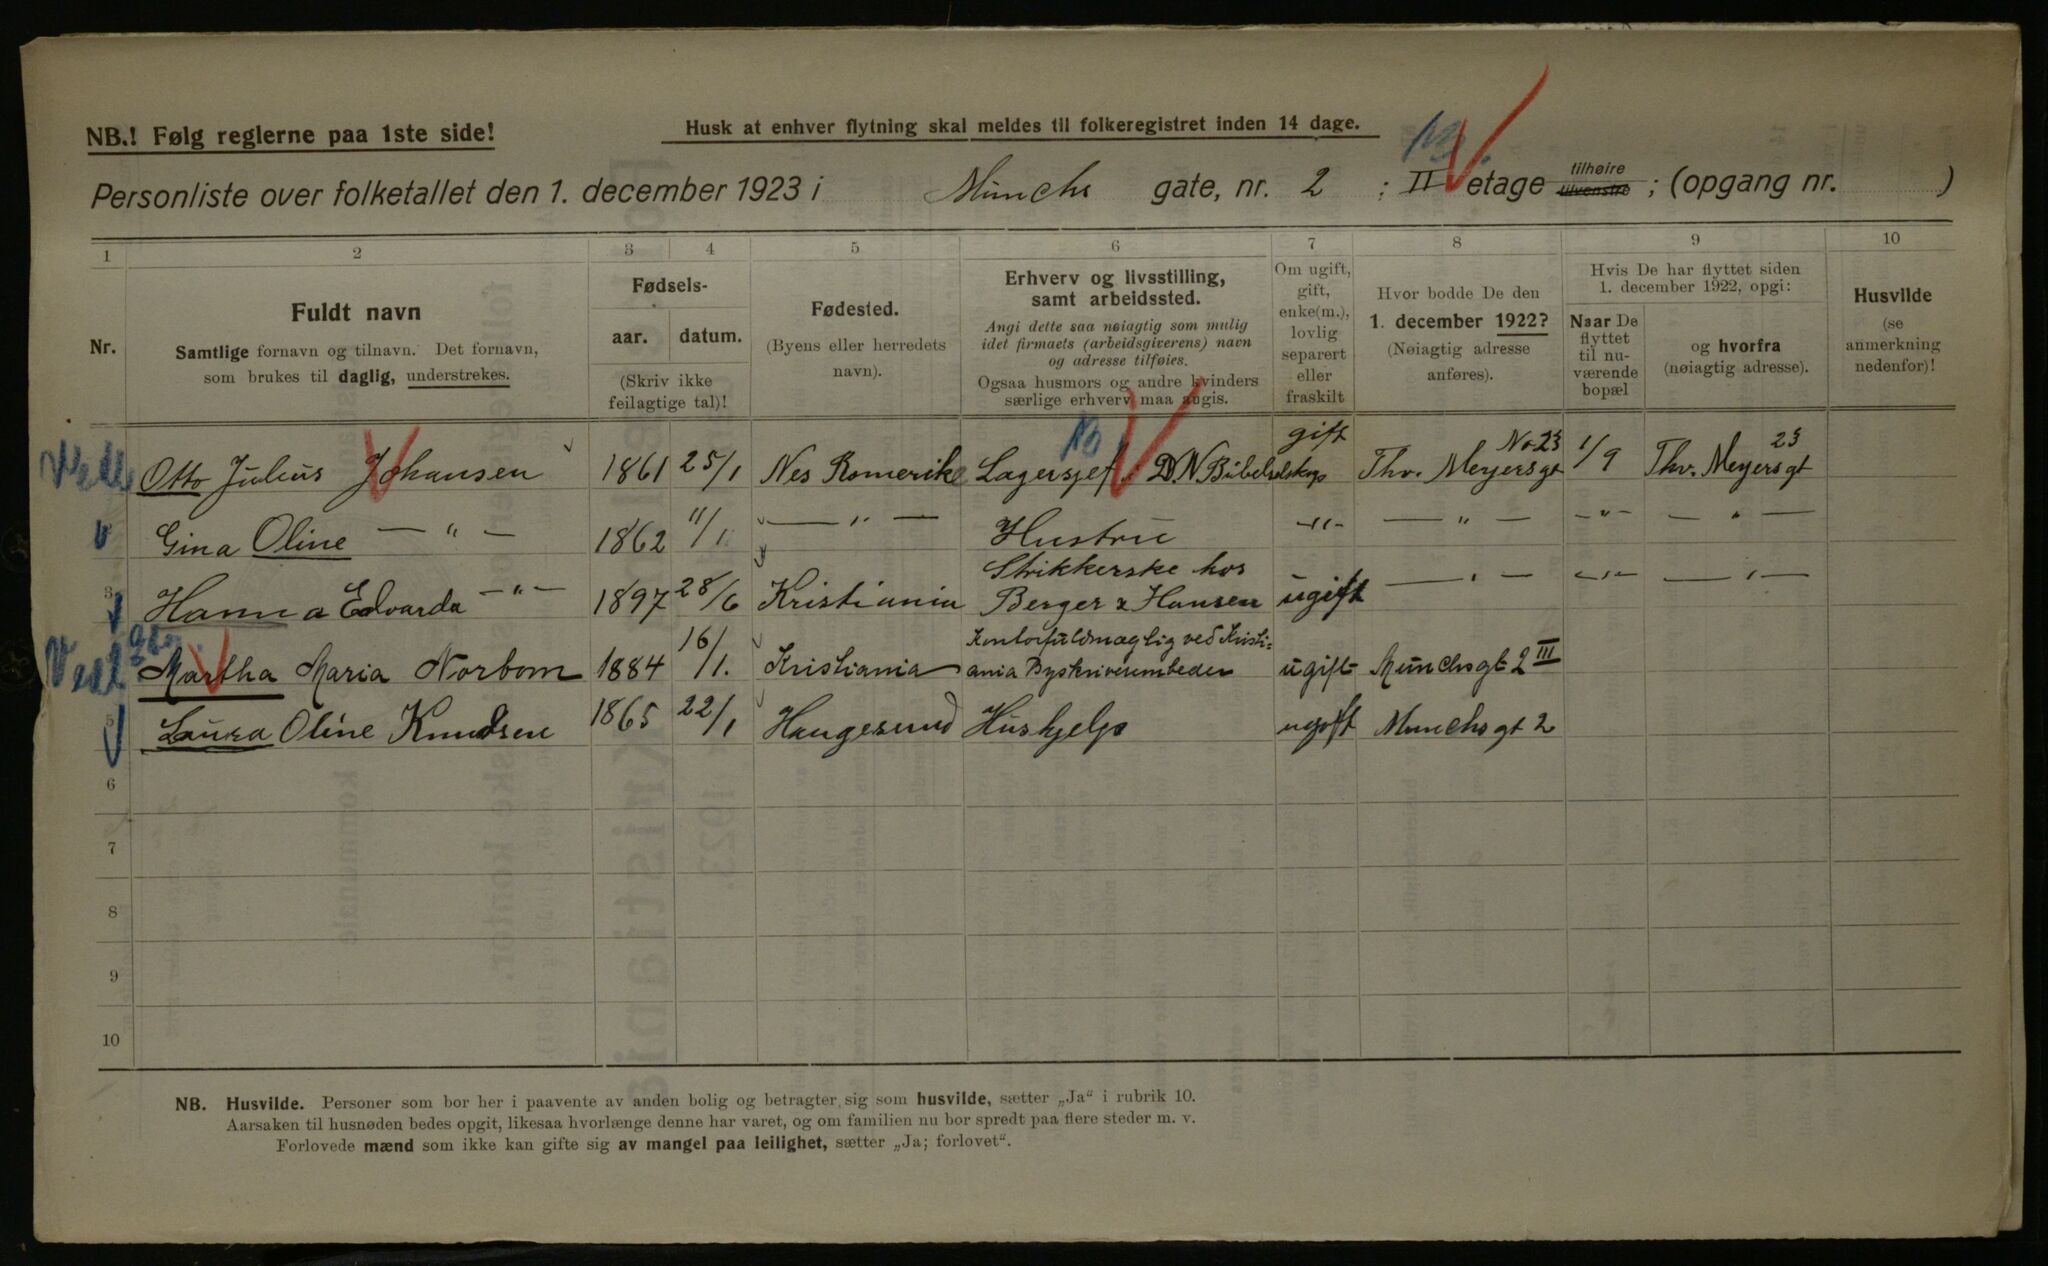 NB.! Følg reglerne paa 1ste side!
Husk at enhver flytning skal meldes til folkeregistret inden 14 dage.
Personliste over folketallet den 1. december 1923 i Munchs gate, nr. 2 ; II etage tilhøire tilvenstre ; (opgang nr. )
1 2 3 4 5 6 7 8 9 10
Nr.
Fuldt navn
Samtlige fornavn og tilnavn. Det fornavn,
som brukes til daglig, understrekes.
Fødsels-
aar. datum.
(Skriv ikke
feilagtige tal)!
Fødested.
(Byens eller herredets
navn).
Erhverv og livsstilling,
samt arbeidssted.
Angi dette saa nøiagtig som mulig
idet firmaets (arbeidsgiverens) navn
og adresse tilføies.
Ogsaa husmors og andre kvinders
særlige erhverv maa angis.
Om ugift,
gift,
enke(m.),
lovlig
separert
eller
fraskilt
Hvor bodde De den
1. december 1922?
(Nøiagtig adresse
anføres).
Hvis De har flyttet siden
1. december 1922, opgi:
Naar De
flyttet
til nu-
værende
bopæl
og hvorfra
(nøiagtig adresse).
Husvilde
(se
anmerkning
nedenfor)!
Otto Julius Johansen 1861 25/1 Nes Romerike Lagersjef i D.N. Bibelselskap gift Thv. Meyersgt No 23 1/9 Thv. Meyersgt 23
Gina Oline — " — 1862 11/1 — " — Hustru -"- — " — -"- — " —
3 Hanna Edvarda — " — 1897 28/6 Kristiania Strikkerske hos
Berger & Hansen ugift — " — -"- — " —
Martha Maria Norbom 1884 16/1. Kristiania Kontorfuldmægtig ved Kristi-
ania Byskriverembede ugift Munchsgt 2 III
5 Laura Oline Knudsen 1865 22/1 Haugesund Hushjelp ugift Munchsgt 2
6
7
8
9
10
NB. Husvilde. Personer som bor her i paavente av anden bolig og betragter sig som husvilde, sætter „Ja" i rubrik 10.
Aarsaken til husnøden bedes opgit, likesaa hvorlænge denne har varet, og om familien nu bor spredt paa flere steder m. v.
Forlovede mænd som ikke kan gifte sig av mangel paa leilighet, sætter „Ja; forlovet".